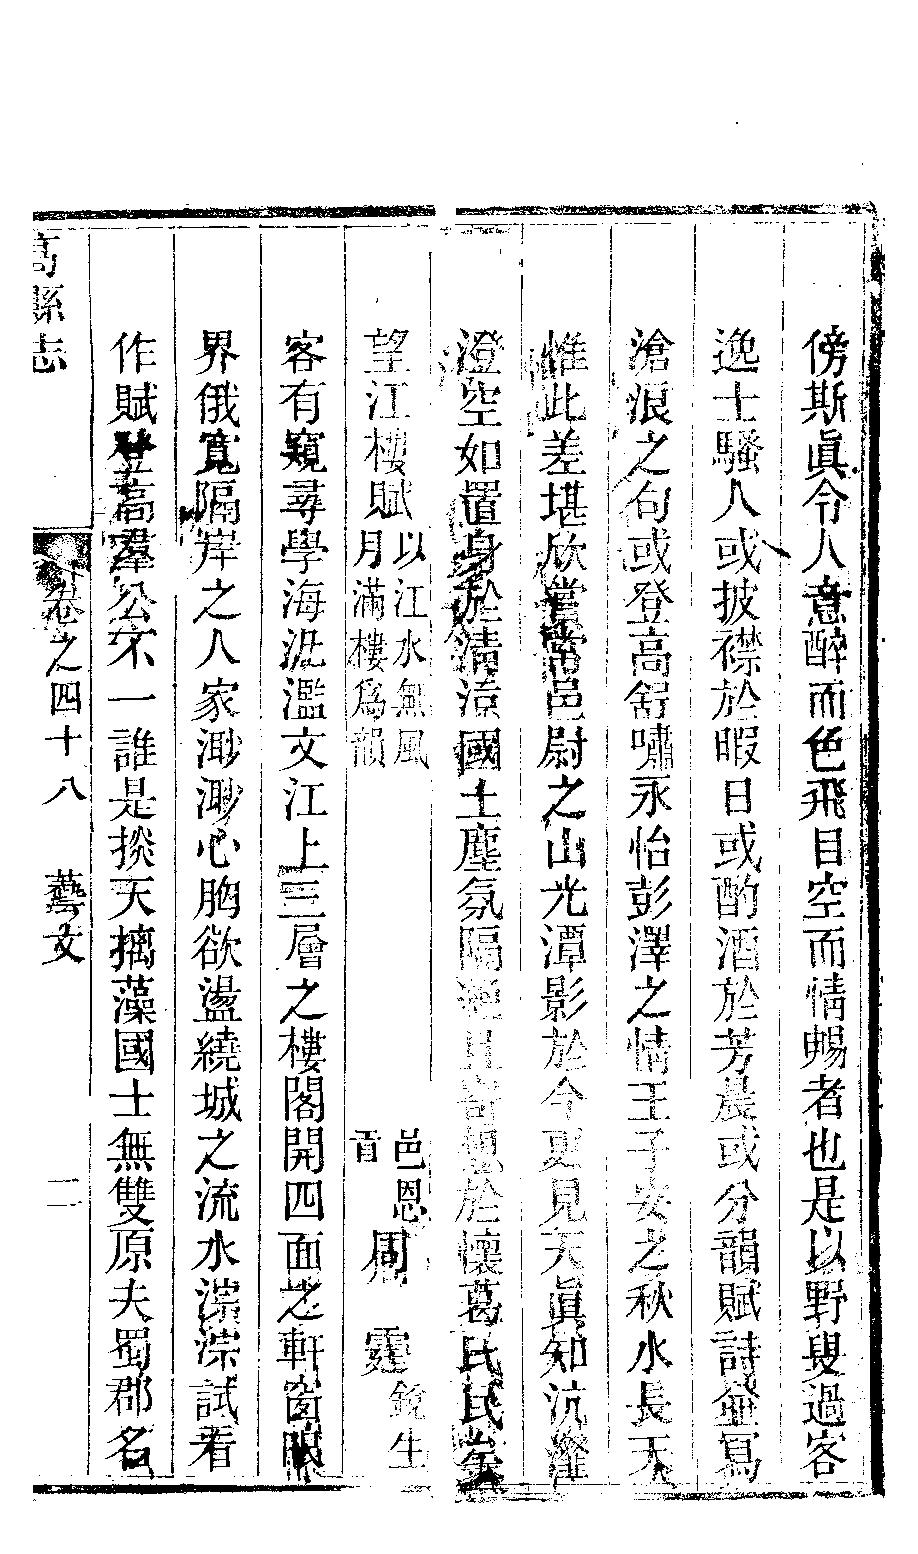 傍斯眞令人意醉而色飛目空而情暢者也是以野叟過客
逸士騷人或披襟於暇日或酌酒於芳晨或分韻賦詩並寫
滄浪之句或登高舒嘯永怡彭澤之情王子安之秋水長天
惟此差堪欣賞當邑尉之山光潭影於今更見天眞知沆瀣
澄空如置身於清涼國土塵氛隔 於懷葛氏民矣
望江樓賦以江水無風月滿樓爲韻 邑恩貢周霆銳生
客有窺尋學海汎濫文江上三層之樓閣開四面之軒窗眼
界俄寬隔岸之人家渺渺心胸欲盪繞城之流水淙淙試看
作賦登高羣公不一誰是掞天摛藻國士無雙原夫蜀郡名
高縣志 卷之四十八 藝文 二